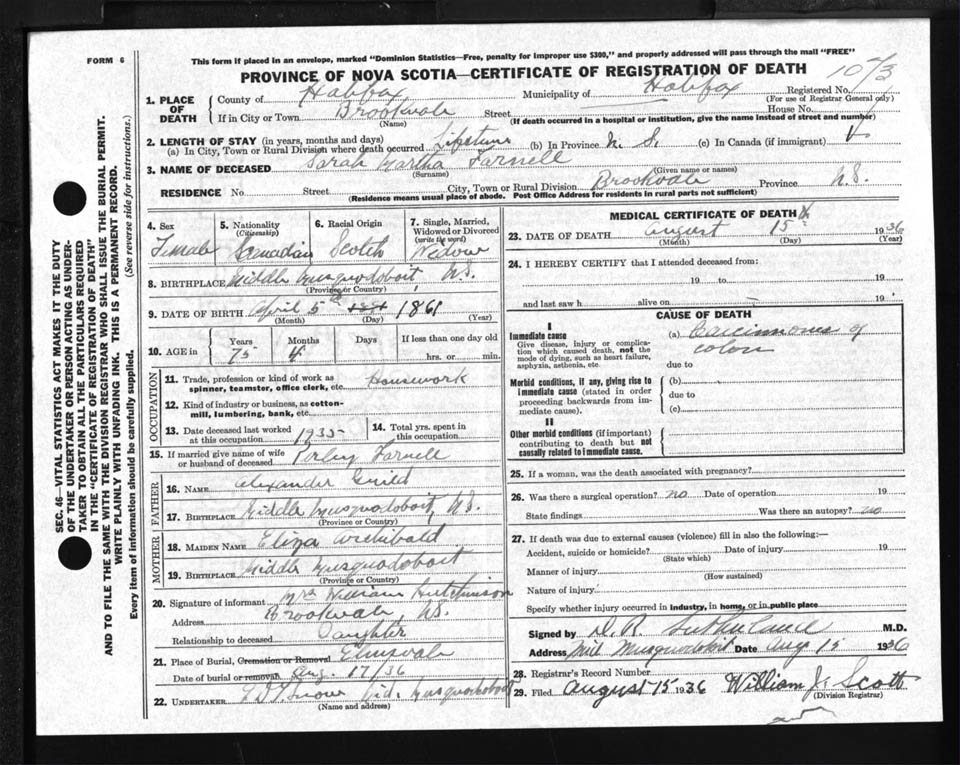 FORM 6
This form if placed in an envelope, marked "Dominion Statistics—Free, penalty for improper use $300," and properly addressed will pass through the mail "FREE"
PROVINCE OF NOVA SCOTIA—CERTIFICATE OF REGISTRATION OF DEATH
SEC. 46—VITAL STATISTICS ACT MAKES IT THE DUTY
OF THE UNDERTAKER OR PERSON ACTING AS UNDER-
TAKER TO OBTAIN ALL THE PARTICULARS REQUIRED
IN THE "CERTIFICATE OF REGISTRATION OF DEATH"
AND TO FILE THE SAME WITH THE DIVISION REGISTRAR WHO SHALL ISSUE THE BURIAL PERMIT.
WRITE PLAINLY WITH UNFADING INK. THIS IS A PERMANENT RECORD.
Every item of information should be carefully supplied. (See reverse side for instructions.)
1. PLACE OF DEATH County of Halifax Municipality of Halifax Registered No. 1073
(For use of Registrar General only)
If in City or Town Brookvale Street House No.
(Name) (If death occurred in a hospital or institution, give the name instead of street and number)
2. LENGTH OF STAY (in years, months and days)
(a) In City, Town or Rural Division where death occurred Lifetime (b) In Province N. S. (c) In Canada (if immigrant)
3. NAME OF DECEASED Sarah Martha Farnell
(Surname) (Given name or names)
RESIDENCE No. Street City, Town or Rural Division Brookvale Province N.S.
(Residence means usual place of abode. Post Office Address for residents in rural parts not sufficient)
4. Sex Female
5. Nationality (Citizenship) Canadian
6. Racial Origin Scotch
7. Single, Married, Widowed or Divorced (write the word) Widow
8. BIRTHPLACE Middle Musquodoboit, N.S.
(Province or Country)
9. DATE OF BIRTH April 5th 1861
(Month) (Day) (Year)
10. AGE in Years 75 Months 4 Days If less than one day old hrs. or min.
OCCUPATION
11. Trade, profession or kind of work as spinner, teamster, office clerk, etc. Housework
12. Kind of industry or business, as cotton-mill, lumbering, bank, etc.
13. Date deceased last worked at this occupation 1935
14. Total yrs. spent in this occupation
15. If married give name of wife or husband of deceased Perley Farnell
FATHER
16. NAME Alexander Guild
17. BIRTHPLACE Middle Musquodoboit, N.S.
(Province or Country)
MOTHER
18. MAIDEN NAME Eliza Archibald
19. BIRTHPLACE Middle Musquodoboit
(Province or Country)
20. Signature of informant Mrs William Hutchinson
Address Brookvale, N.S.
Relationship to deceased Daughter
21. Place of Burial, Cremation or Removal Elmsvale
Date of burial or removal Aug. 17/36
22. UNDERTAKER Snow Mid. Musquodoboit
(Name and address)
MEDICAL CERTIFICATE OF DEATH
23. DATE OF DEATH August 15 1936
(Month) (Day) (Year)
24. I HEREBY CERTIFY that I attended deceased from:
19 to 19
and last saw h alive on 19
CAUSE OF DEATH
I
Immediate cause
Give disease, injury or complication which caused death, not the mode of dying, such as heart failure, asphyxia, asthenia, etc.
(a) Carcinoma of
colon
due to
Morbid conditions, if any, giving rise to immediate cause (stated in order proceeding backwards from immediate cause).
(b)
due to
(c)
II
Other morbid conditions (if important) contributing to death but not causally related to immediate cause.
25. If a woman, was the death associated with pregnancy?
26. Was there a surgical operation? no Date of operation 19
State findings Was there an autopsy? no
27. If death was due to external causes (violence) fill in also the following:—
Accident, suicide or homicide? Date of injury 19
(State which)
Manner of injury
(How sustained)
Nature of injury
Specify whether injury occurred in industry, in home, or in public place
Signed by D. R. Sutherland M.D.
Address Mid Musquodoboit Date Aug 15 1936
28. Registrar's Record Number
29. Filed August 15 1936 William J. Scott
(Division Registrar)